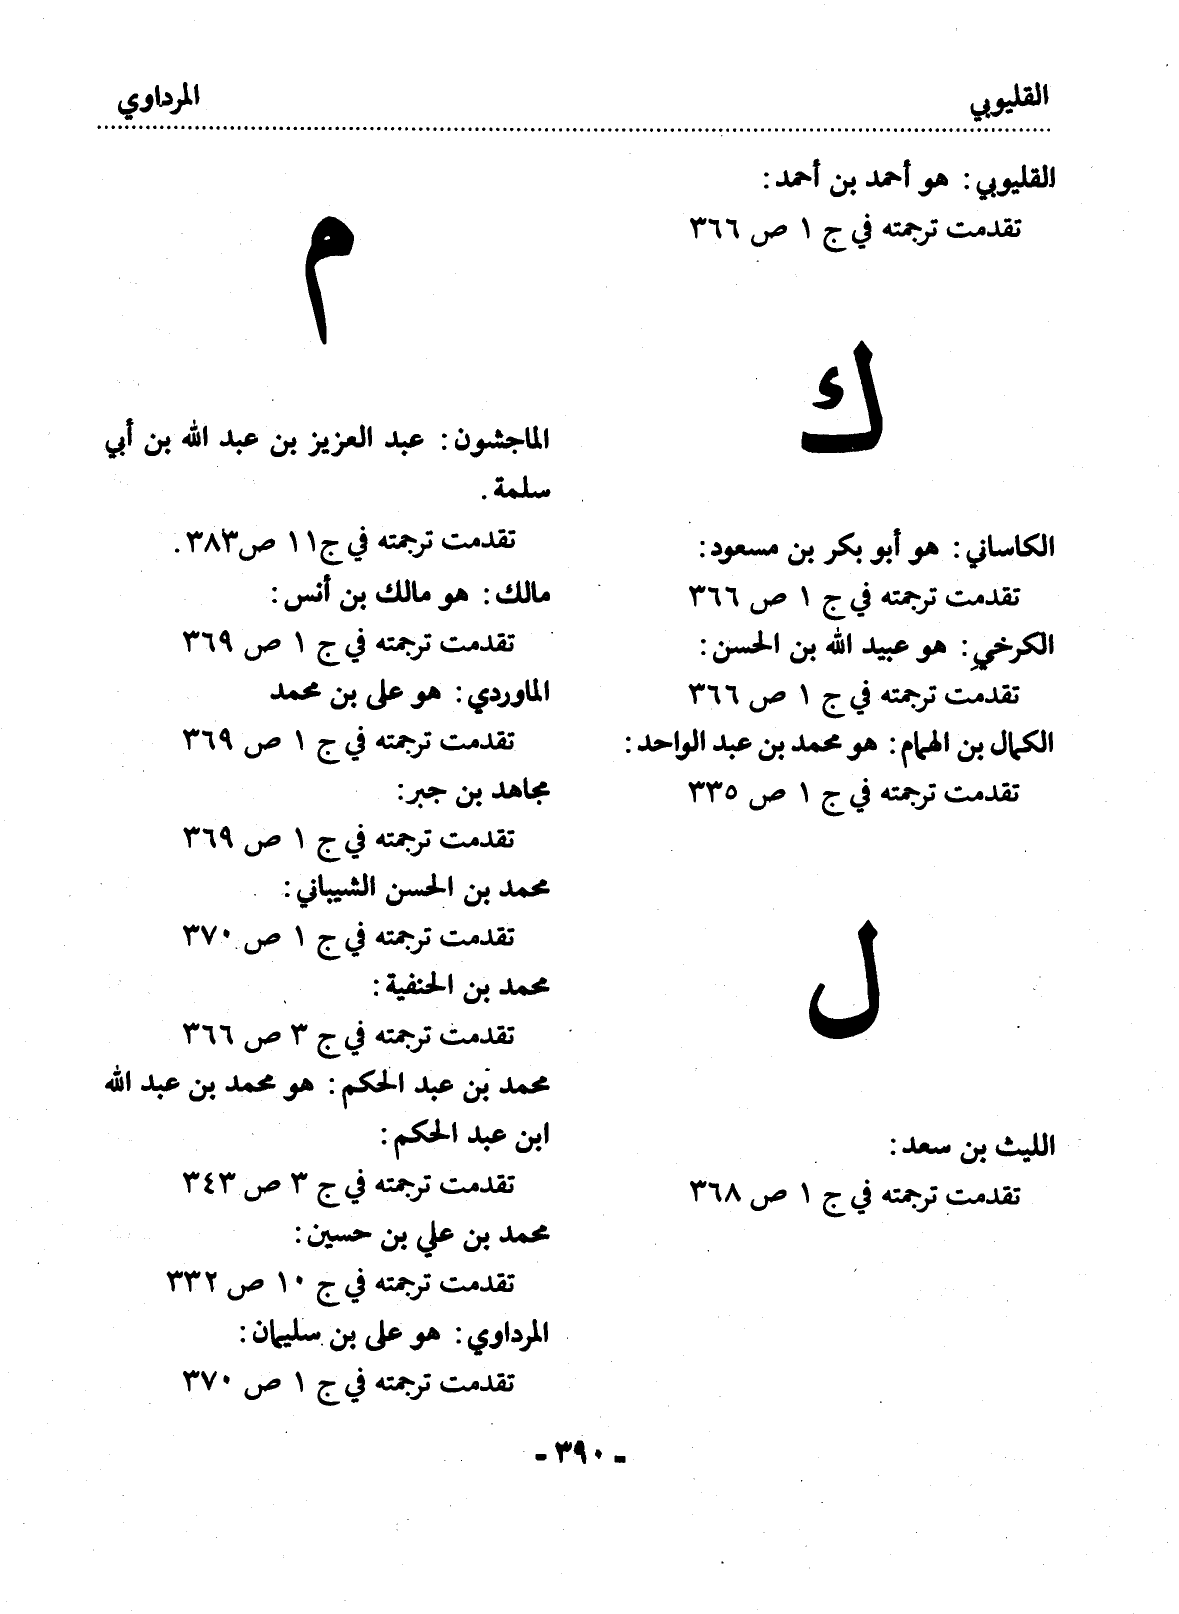 القليوبي
المرداوي
القليوبي: هو أحمد بن أحمد:
تقدمت ترجمته في ج ١ ص ٣٦٦
ك
الكاساني: هو أبو بكر بن مسعود:
تقدمت ترجمته في ج ١ ص ٣٦٦
الكرخي: هو عبيد الله بن الحسن:
تقدمت ترجمته في ج ١ ص ٣٦٦
الكمال بن الهمام: هو محمد بن عبد الواحد:
تقدمت ترجمته في ج ١ ص ٣٣٥
ل
الليث بن سعد:
تقدمت ترجمته في ج ١ ص ٣٦٨
م
الماجشون: عبد العزيز بن عبد الله بن أبي
سلمة.
تقدمت ترجمته في ج١١ ص٣٨٣.
مالك: هو مالك بن أنس:
تقدمت ترجمته في ج ١ ص ٣٦٩
الماوردي: هو على بن محمد
تقدمت ترجمته في ج ١ ص ٣٦٩
مجاهد بن جبر:
تقدمت ترجمته في ج ١ ص ٣٦٩
محمد بن الحسن الشيباني:
تقدمت ترجمته في ج ١ ص ٣٧٠
محمد بن الحنفية:
تقدمت ترجمته في ج ٣ ص ٣٦٦
محمد بن عبد الحكم: هو محمد بن عبد الله
ابن عبد الحكم:
تقدمت ترجمته في ج ٣ ص ٣٤٣
محمد بن علي بن حسين:
تقدمت ترجمته في ج ١٠ ص ٣٣٢
المرداوي: هو على بن سليمان:
تقدمت ترجمته في ج ١ ص ٣٧٠
- ٣٩٠ -